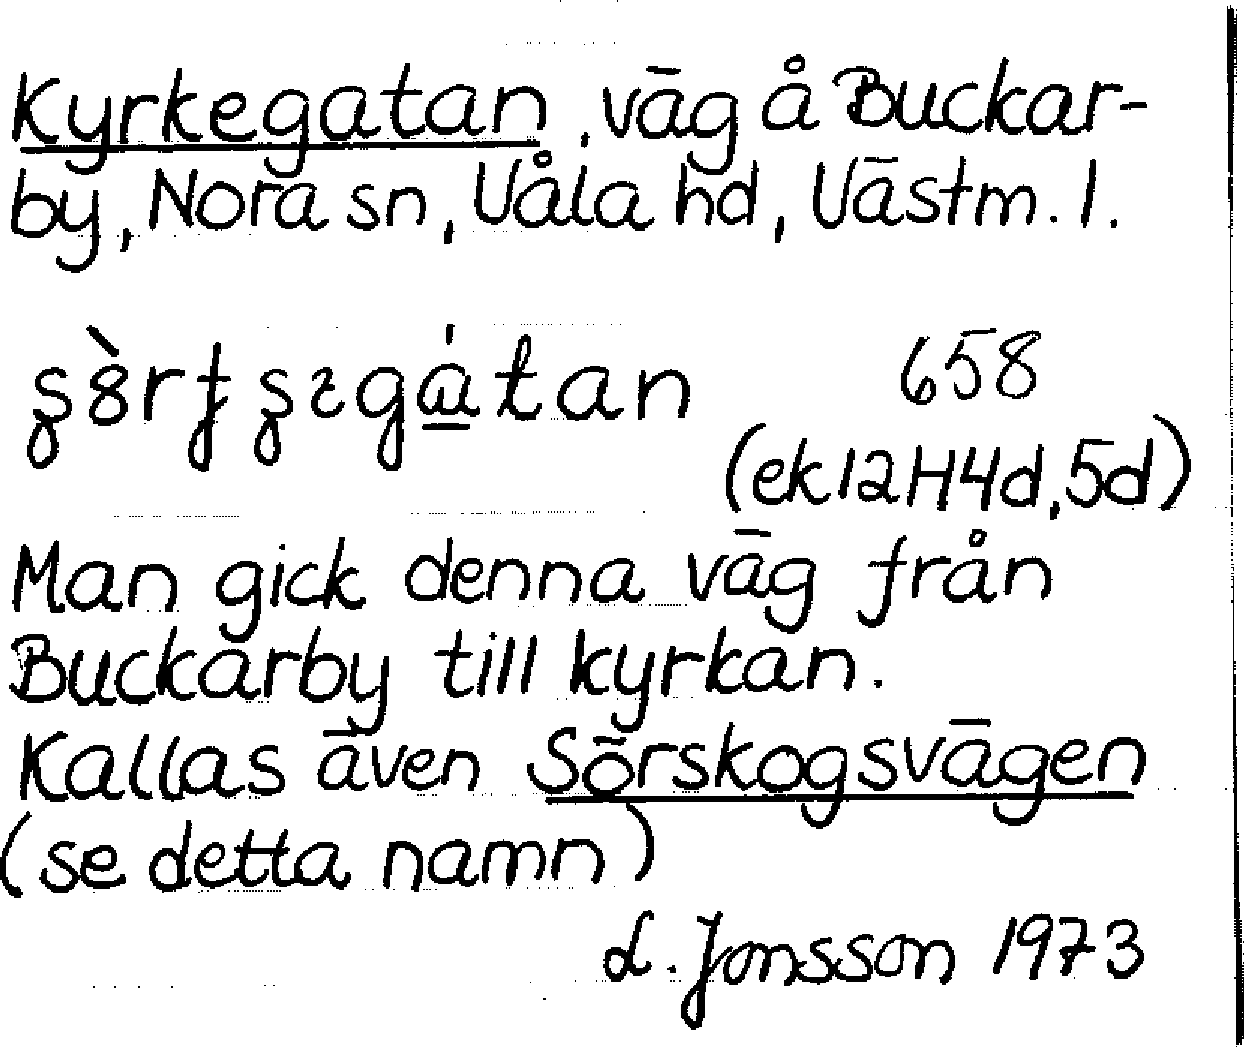 Kyrkegatan, väg å Buckar-
by, Nora sn, Våla hd, Västm. l.
658
(ek 12H4d, 5d)
Man gick denna väg från
Buckarby till kyrkan.
Kallas även Sörskogsvägen
(se detta namn)
L. Jonsson 1973